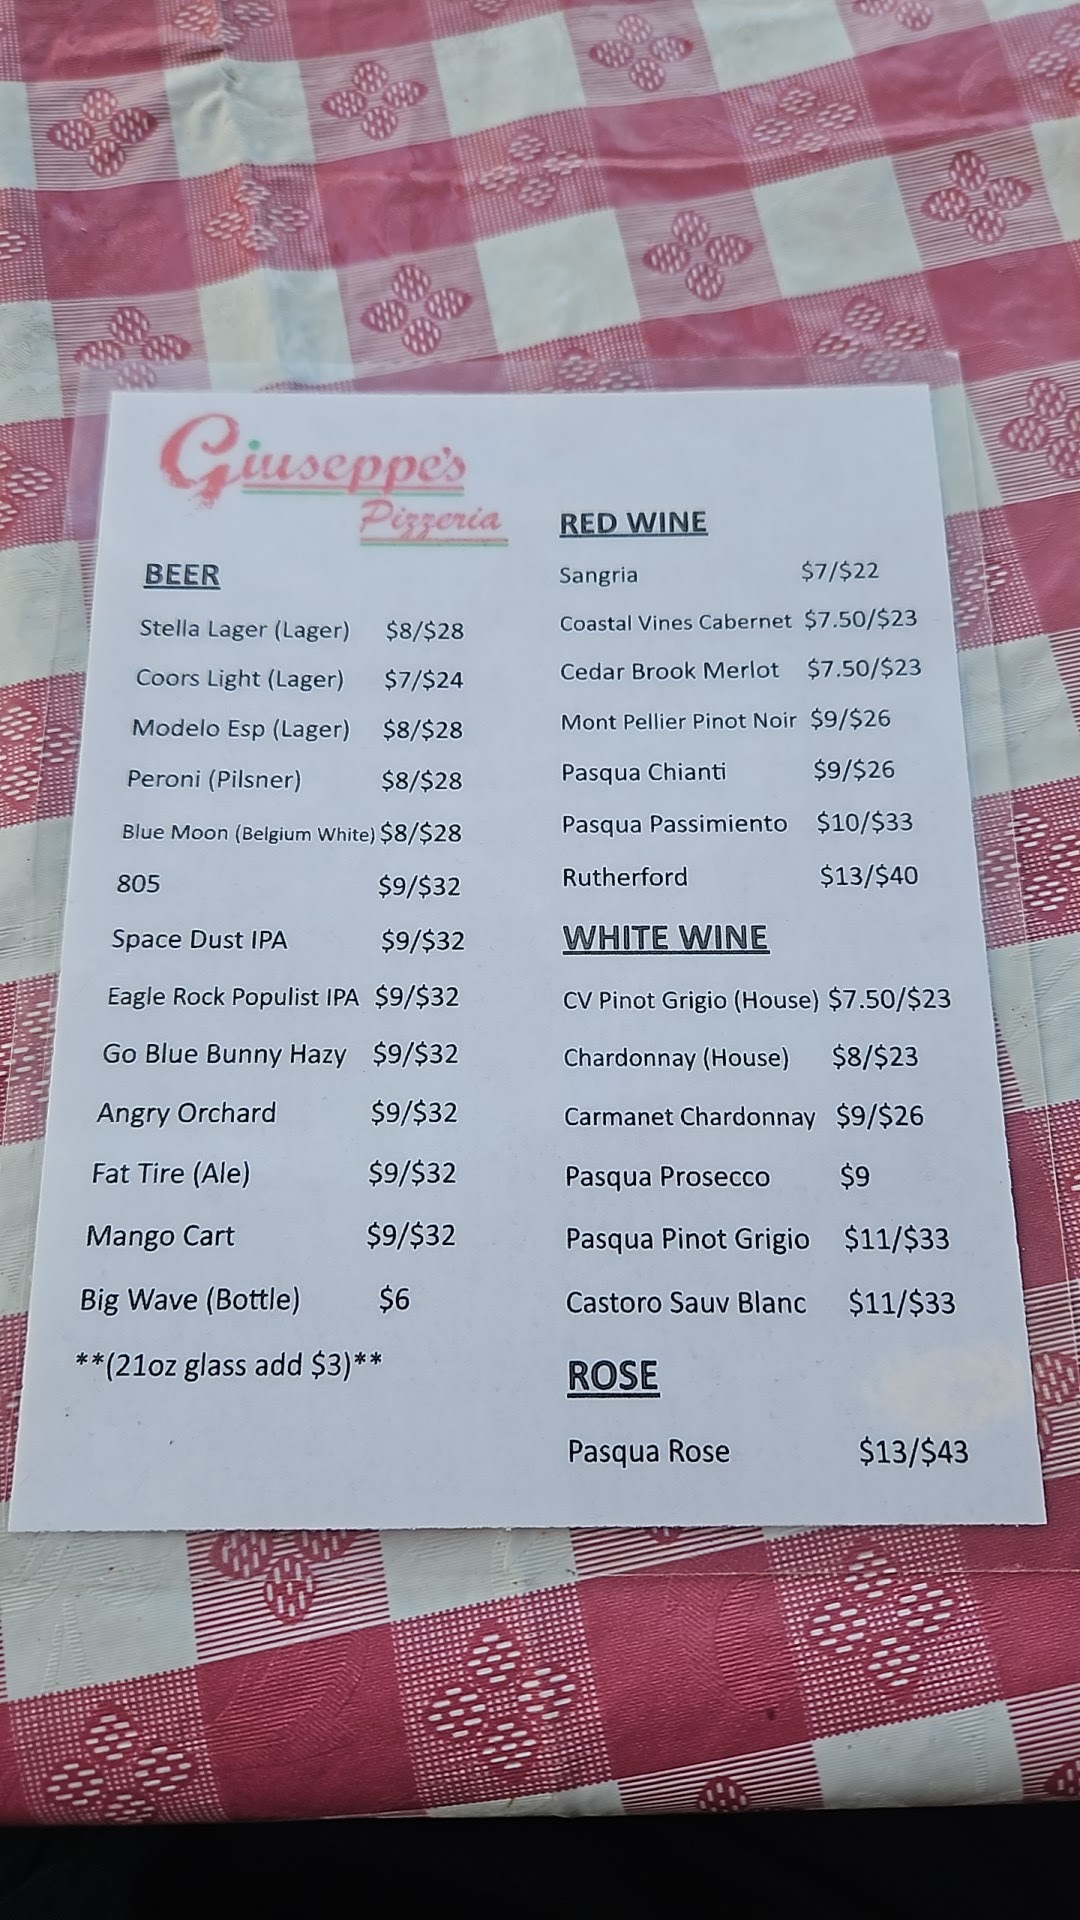 Giuseppe's
Pizzeria
BEER
Stella Lager (Lager) $8/$28
Coors Light (Lager) $7/$24
Modelo Esp (Lager) $8/$28
Peroni (Pilsner) $8/$28
Blue Moon (Belgium White) $8/$28
805 $9/$32
Space Dust IPA $9/$32
Eagle Rock Populist IPA $9/$32
Go Blue Bunny Hazy $9/$32
Angry Orchard $9/$32
Fat Tire (Ale) $9/$32
Mango Cart $9/$32
Big Wave (Bottle) $6
**(21oz glass add $3)**
RED WINE
Sangria $7/$22
Coastal Vines Cabernet $7.50/$23
Cedar Brook Merlot $7.50/$23
Mont Pellier Pinot Noir $9/$26
Pasqua Chianti $9/$26
Pasqua Passimiento $10/$33
Rutherford $13/$40
WHITE WINE
CV Pinot Grigio (House) $7.50/$23
Chardonnay (House) $8/$23
Carmanet Chardonnay $9/$26
Pasqua Prosecco $9
Pasqua Pinot Grigio $11/$33
Castoro Sauv Blanc $11/$33
ROSE
Pasqua Rose $13/$43